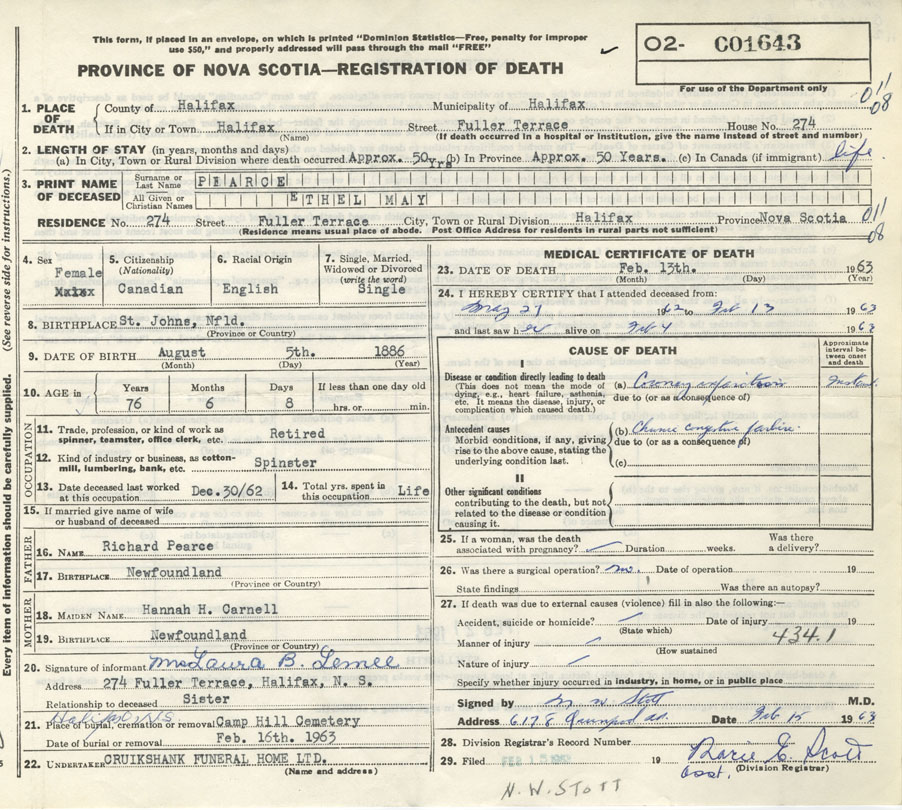 This form, if placed in an envelope, on which is printed "Dominion Statistics—Free, penalty for improper
use $50," and properly addressed will pass through the mail "FREE"
O2- C01643
PROVINCE OF NOVA SCOTIA—REGISTRATION OF DEATH
For use of the Department only
011
08
1. PLACE OF DEATH { County of Halifax Municipality of Halifax
If in City or Town Halifax Street Fuller Terrace House No. 274
(Name) (If death occurred in a hospital or institution, give the name instead of street and number)
2. LENGTH OF STAY (in years, months and days)
(a) In City, Town or Rural Division where death occurred Approx. 50 Yrs (b) In Province Approx. 50 Years. (c) In Canada (if immigrant) life
3. PRINT NAME OF DECEASED { Surname or Last Name PEARCE
All Given or Christian Names ETHEL MAY
RESIDENCE No. 274 Street Fuller Terrace City, Town or Rural Division Halifax Province Nova Scotia 011
08
(Residence means usual place of abode. Post Office Address for residents in rural parts not sufficient)
(See reverse side for instructions.)
Every item of information should be carefully supplied.
4. Sex Female
5. Citizenship (Nationality) Canadian
6. Racial Origin English
7. Single, Married, Widowed or Divorced (write the word) Single
8. BIRTHPLACE St. Johns, Nfld.
(Province or Country)
9. DATE OF BIRTH August 5th. 1886
(Month) (Day) (Year)
10. AGE in Years 76 Months 6 Days 8 If less than one day old hrs. or min.
OCCUPATION
11. Trade, profession, or kind of work as spinner, teamster, office clerk, etc. Retired
12. Kind of industry or business, as cotton-mill, lumbering, bank, etc. Spinster
13. Date deceased last worked at this occupation Dec.30/62 14. Total yrs. spent in this occupation Life
15. If married give name of wife or husband of deceased
FATHER
16. NAME Richard Pearce
17. BIRTHPLACE Newfoundland
(Province or Country)
MOTHER
18. MAIDEN NAME Hannah H. Carnell
19. BIRTHPLACE Newfoundland
(Province or Country)
20. Signature of informant Mrs Laura B. Lemee
Address 274 Fuller Terrace, Halifax, N. S.
Relationship to deceased Sister
Halifax N.S.
21. Place of burial, cremation or removal Camp Hill Cemetery
Date of burial or removal Feb. 16th. 1963
22. UNDERTAKER CRUIKSHANK FUNERAL HOME LTD.
(Name and address)
MEDICAL CERTIFICATE OF DEATH
23. DATE OF DEATH Feb. 13th. 1963
(Month) (Day) (Year)
24. I HEREBY CERTIFY that I attended deceased from:
May 21 1962 to Feb 13 1963
and last saw her alive on Feb 4 196
CAUSE OF DEATH
Approximate interval between onset and death
I
Disease or condition directly leading to death
(This does not mean the mode of dying, e.g., heart failure, asthenia, etc. It means the disease, injury, or complication which caused death.)
(a) Coronary
due to (or as a consequence of)
Antecedent causes
Morbid conditions, if any, giving rise to the above cause, stating the underlying condition last.
(b) congestive failure
due to (or as a consequence of)
(c)
II
Other significant conditions
contributing to the death, but not related to the disease or condition causing it.
25. If a woman, was the death associated with pregnancy? Duration weeks. Was there a delivery?
26. Was there a surgical operation? no. Date of operation 19
State findings Was there an autopsy?
27. If death was due to external causes (violence) fill in also the following:—
Accident, suicide or homicide? Date of injury 19
(State which) 434.1
Manner of injury
(How sustained
Nature of injury
Specify whether injury occurred in industry, in home, or in public place
Signed by N W Stott M.D.
Address 6178 Quinpool Rd. Date Feb 15 1963
28. Division Registrar's Record Number
29. Filed FEB 15 1963 19
Asst. (Division Registrar)
N.W. STOTT